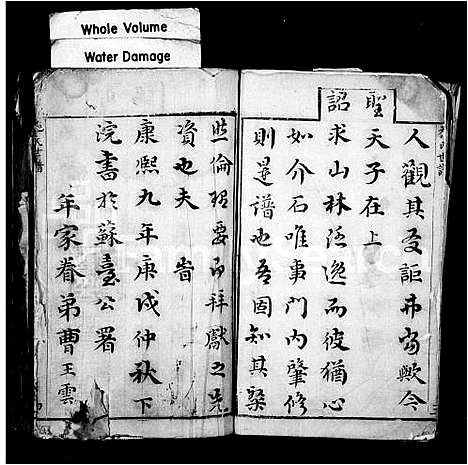 Whole Volume
Water Damage
人觀其受詎弗當歟今
聖天子在上
詔求山林隱逸而彼猶心
如介石唯事門內肇修
則是譜也吾固知其粲
然倫理要而拜獻之先
資也夫 旹
康熙九年庚戌仲秋下
浣書於蘇臺公署
年家眷弟曹王雲